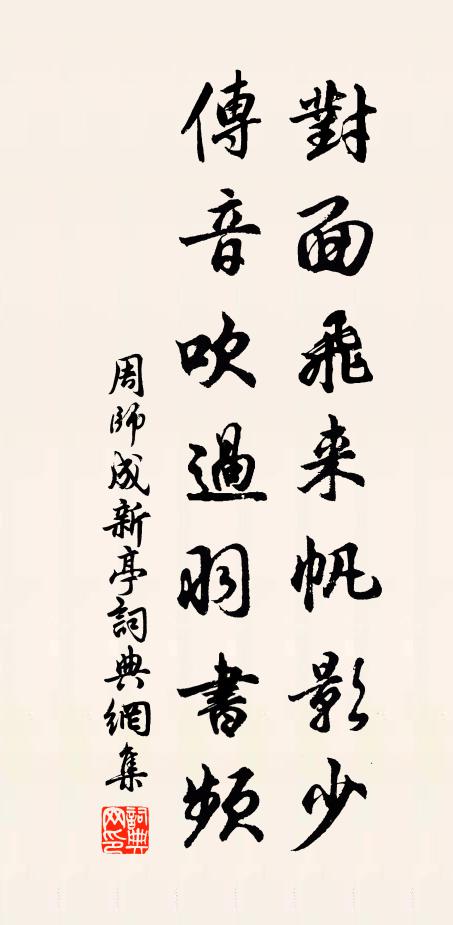 對面飛来帆影少
傳音吹過羽書頻
周師成新亭詞典網集
詞典网印